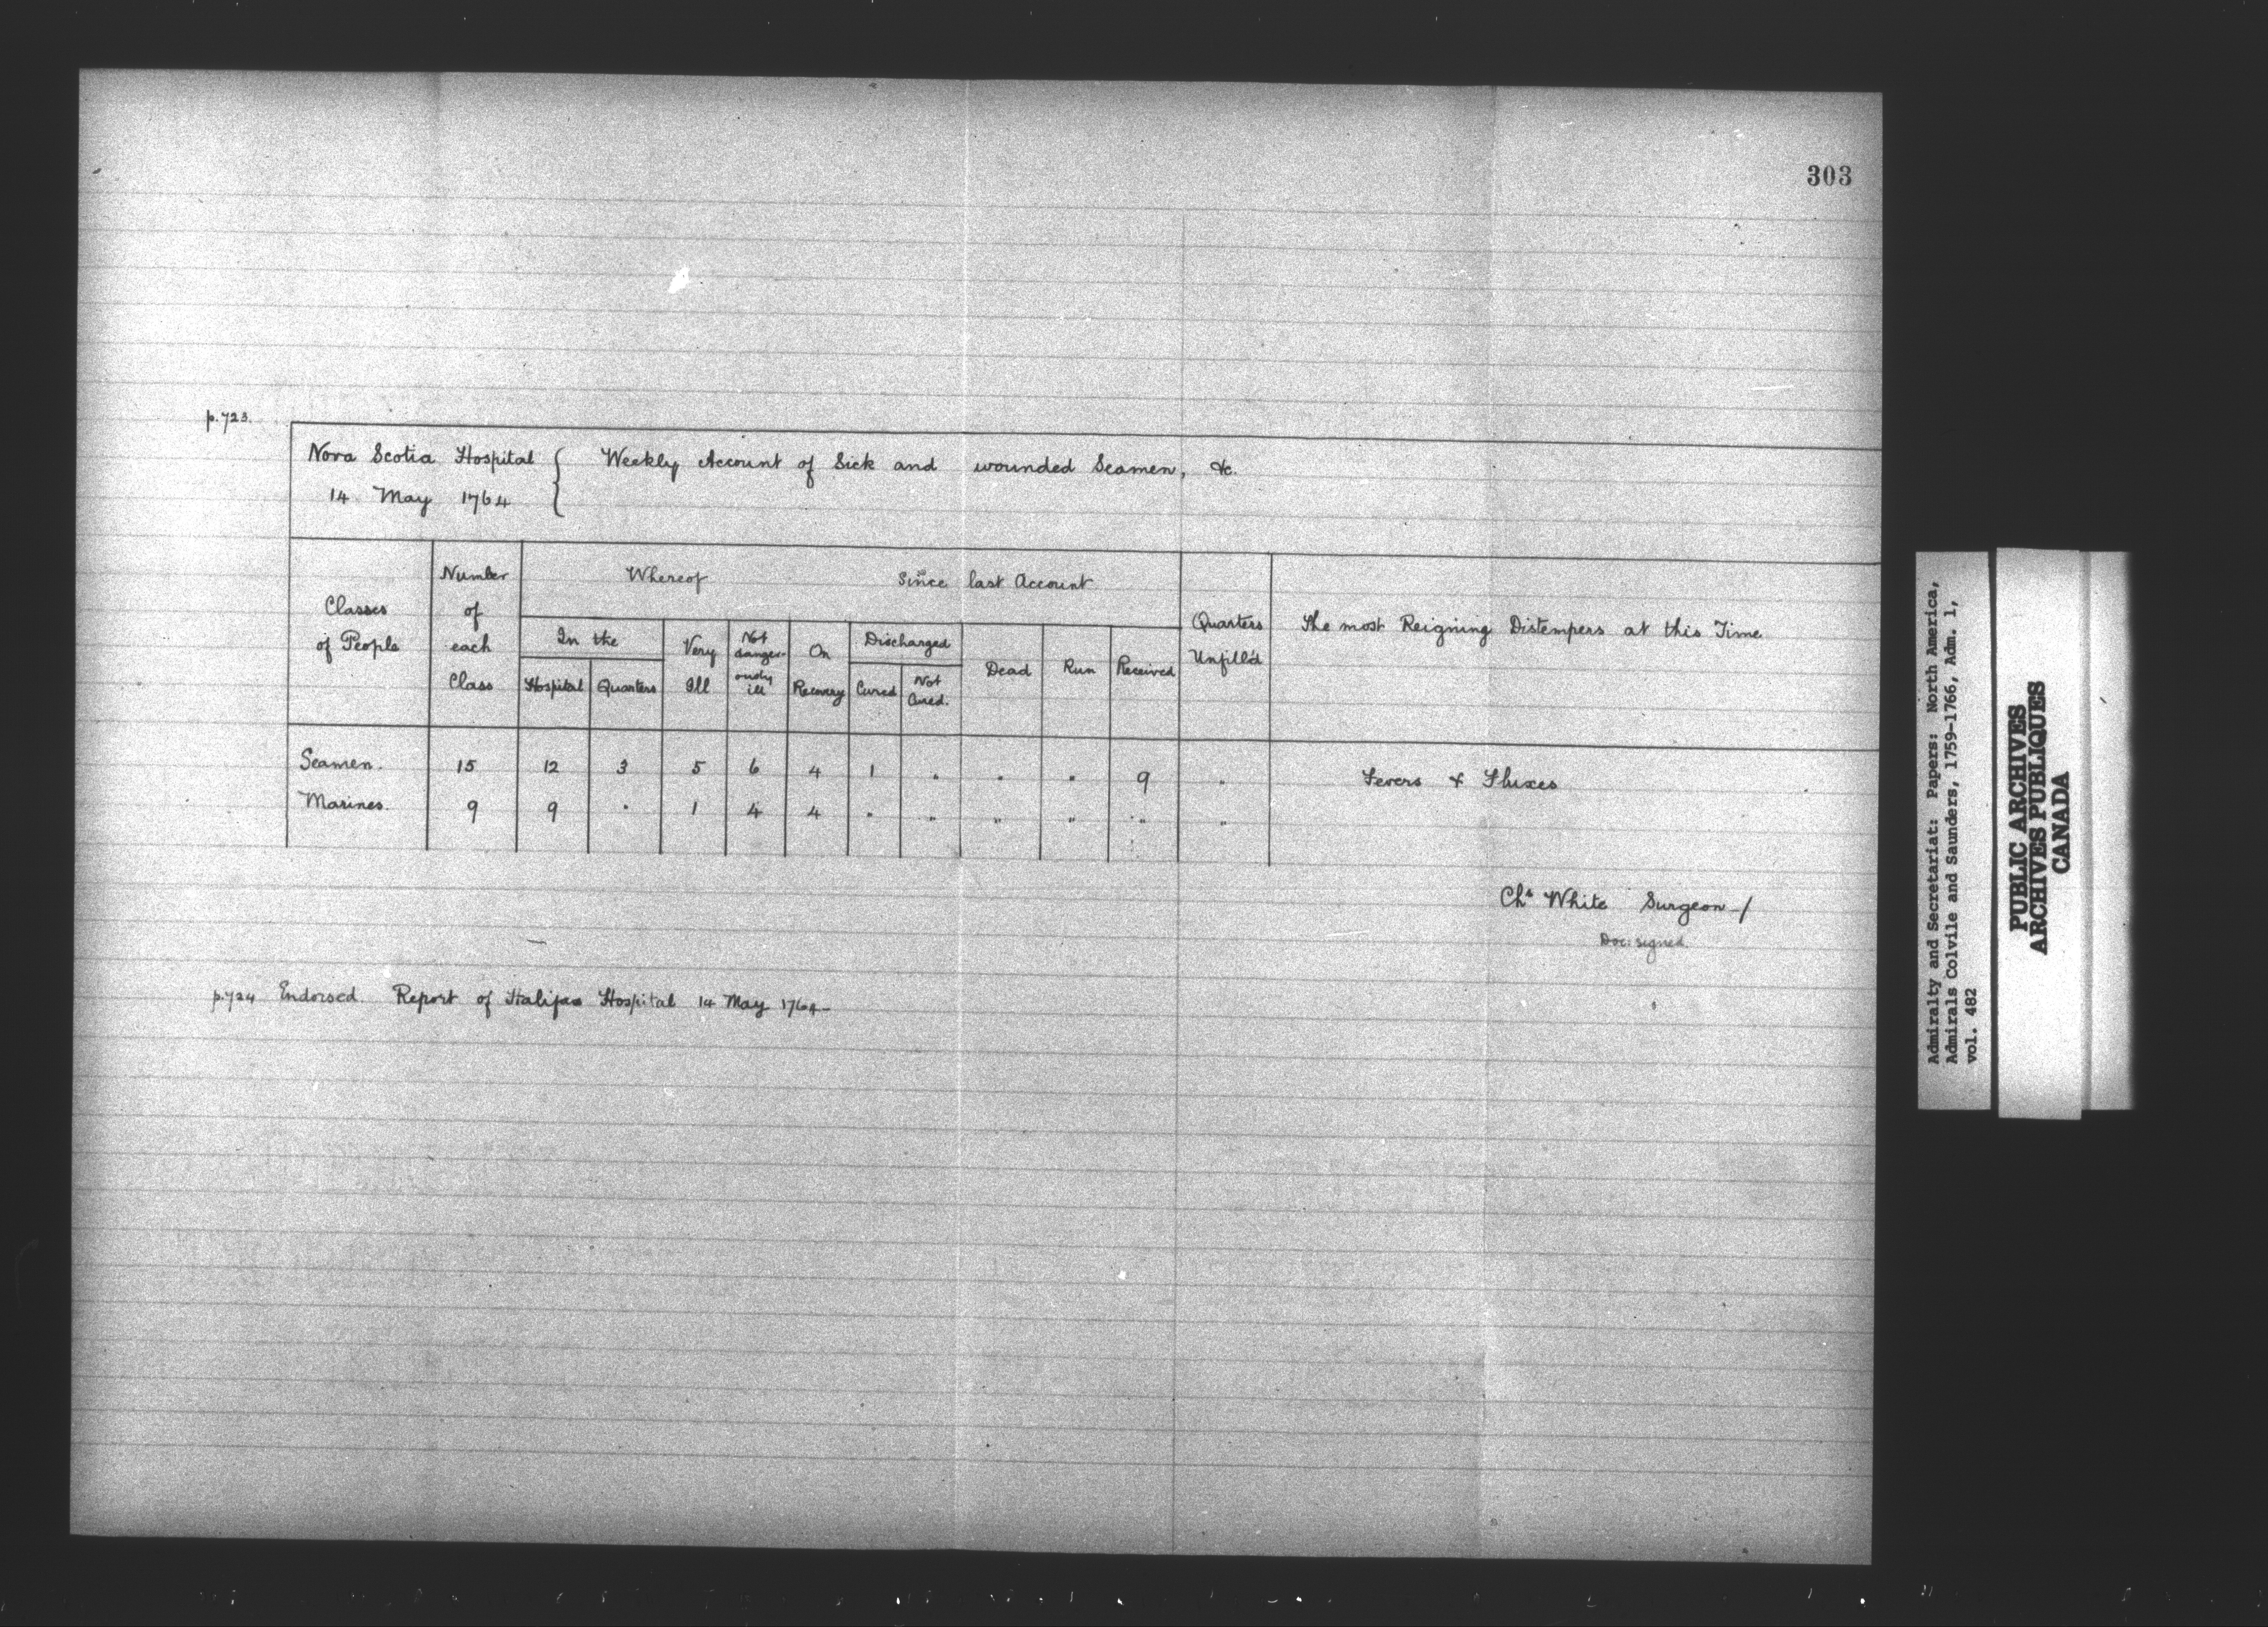 303
p.723.
Nova Scotia Hospital { Weekly Account of Sick and wounded Seamen, &c.
14 May 1764
Classes of People | Number of each Class | Whereof | Since last Account | Quarters Unfill'd | The most Reigning Distempers at this Time
In the | Very Ill | Not dangerously ill | On Recovery | Discharged | Dead | Run | Received
Hospital | Quarters | Cured | Not Cured.
Seamen. 15 12 3 5 6 4 1 " " " 9 " Fevers & Fluxes
Marines. 9 9 " 1 4 4 " " " " " "
Chs White Surgeon -/
Doc: signed
p.724 Endorsed Report of Halifax Hospital 14 May 1764-
Admiralty and Secretariat: Papers: North America,
Admirals Colvile and Saunders, 1759-1766, Adm. 1,
vol. 482
PUBLIC ARCHIVES
ARCHIVES PUBLIQUES
CANADA